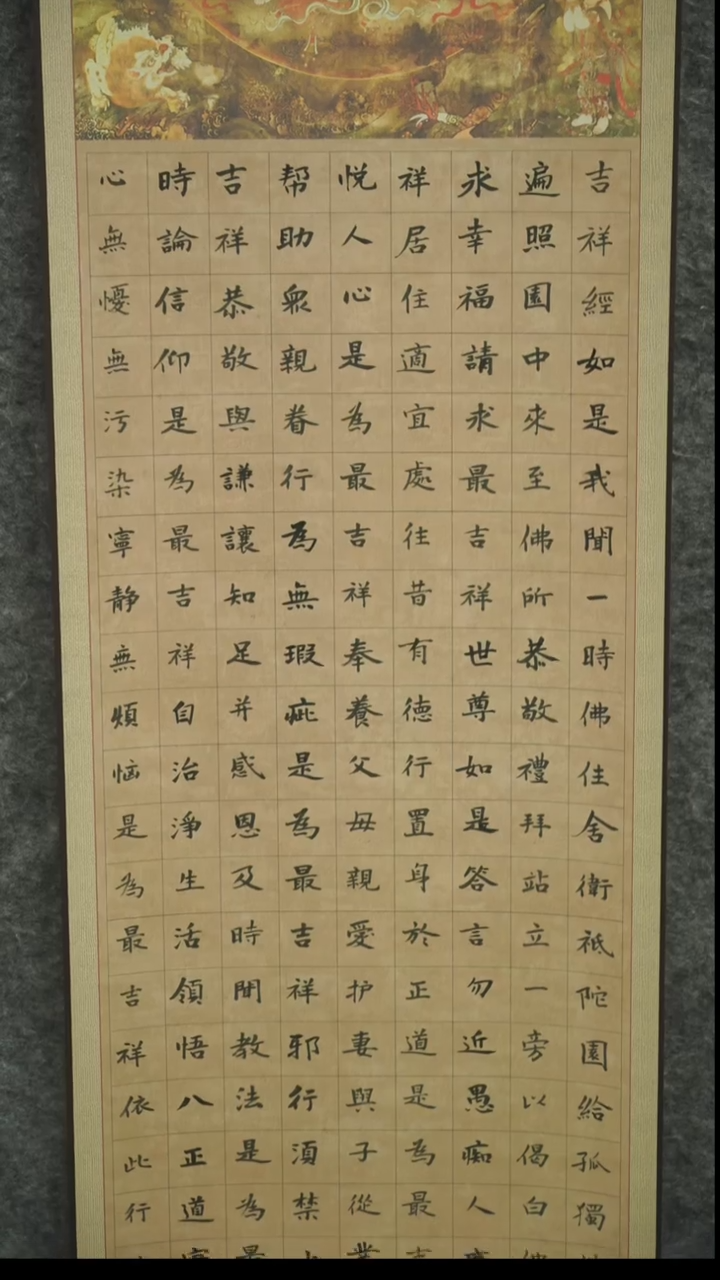 吉祥經如是我聞一時佛住舍衛祇陀園給孤獨
遍照園中來至佛所恭敬禮拜站立一旁以偈白
求幸福請求最吉祥世尊如是答言勿近愚痴人
祥居住適宜處往昔有德行置身於正道是為最
悦人心是為最吉祥奉養父母親愛护妻與子從
帮助眾親眷行為無瑕疵是為最吉祥邪行須禁
吉祥恭敬與謙讓知足并感恩及時聞教法是為
時論信仰是為最吉祥自治淨生活領悟八正道
心無憂無污染寧静無煩恼是為最吉祥依此行